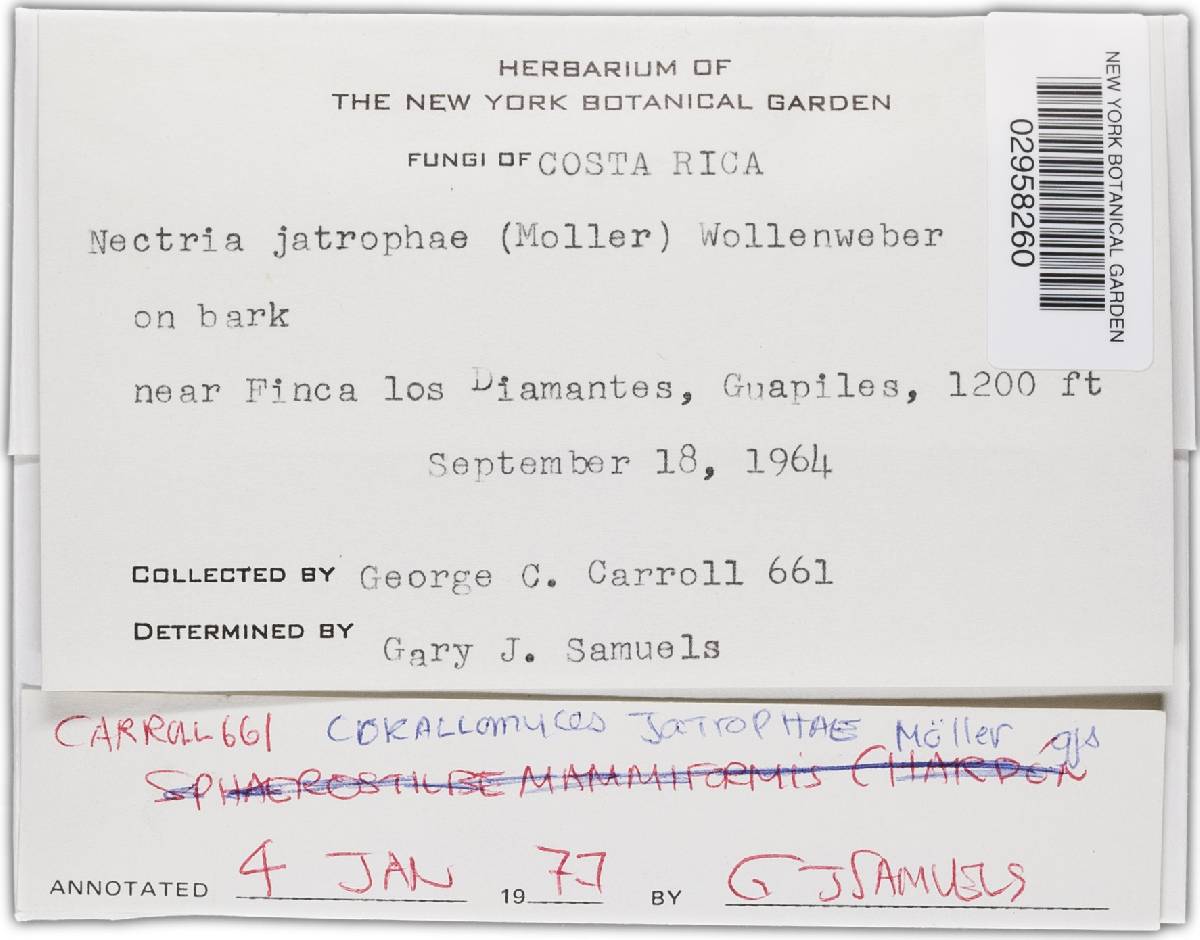 HERBARIUM OF
THE NEW YORK BOTANICAL GARDEN
FUNGI OF COSTA RICA
Nectria jatrophae (Moller) Wollenweber
on bark
near Finca los Diamantes, Guapiles, 1200 ft
September 18, 1964
COLLECTED BY George C. Carroll 661
DETERMINED BY Gary J. Samuels
NEW YORK BOTANICAL GARDEN
02958260
CARROL 661 CORALLOMYCES JATROPHAE Möller gjs
SPHAEROSTILBE MAMMIFORMIS CHARDÓN
ANNOTATED 4 JAN 1977 BY G J SAMUELS